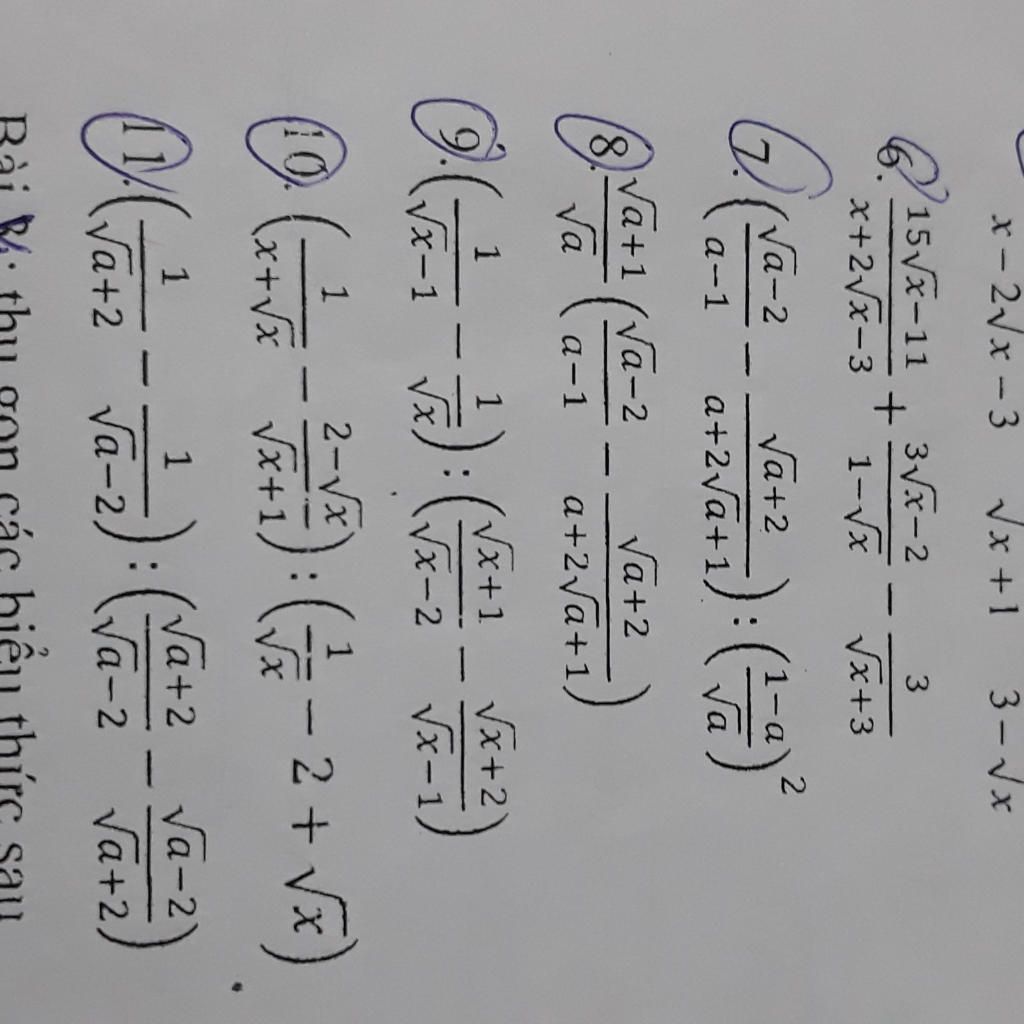 x−2√x−3 √x+1 3−√x
6. (15√x−11)/(x+2√x−3) + (3√x−2)/(1−√x) − 3/(√x+3)
7. ((√a−2)/(a−1) − (√a+2)/(a+2√a+1)) : ((1−a)/√a)²
8. (√a+1)/√a ((√a−2)/(a−1) − (√a+2)/(a+2√a+1))
9. (1/(√x−1) − 1/√x) : ((√x+1)/(√x−2) − (√x+2)/(√x−1))
10. (1/(x+√x) − (2−√x)/(√x+1)) : (1/√x − 2 + √x)
11. (1/(√a+2) − 1/(√a−2)) : ((√a+2)/(√a−2) − (√a−2)/(√a+2))
Bài : thu gọn các biểu thức sau